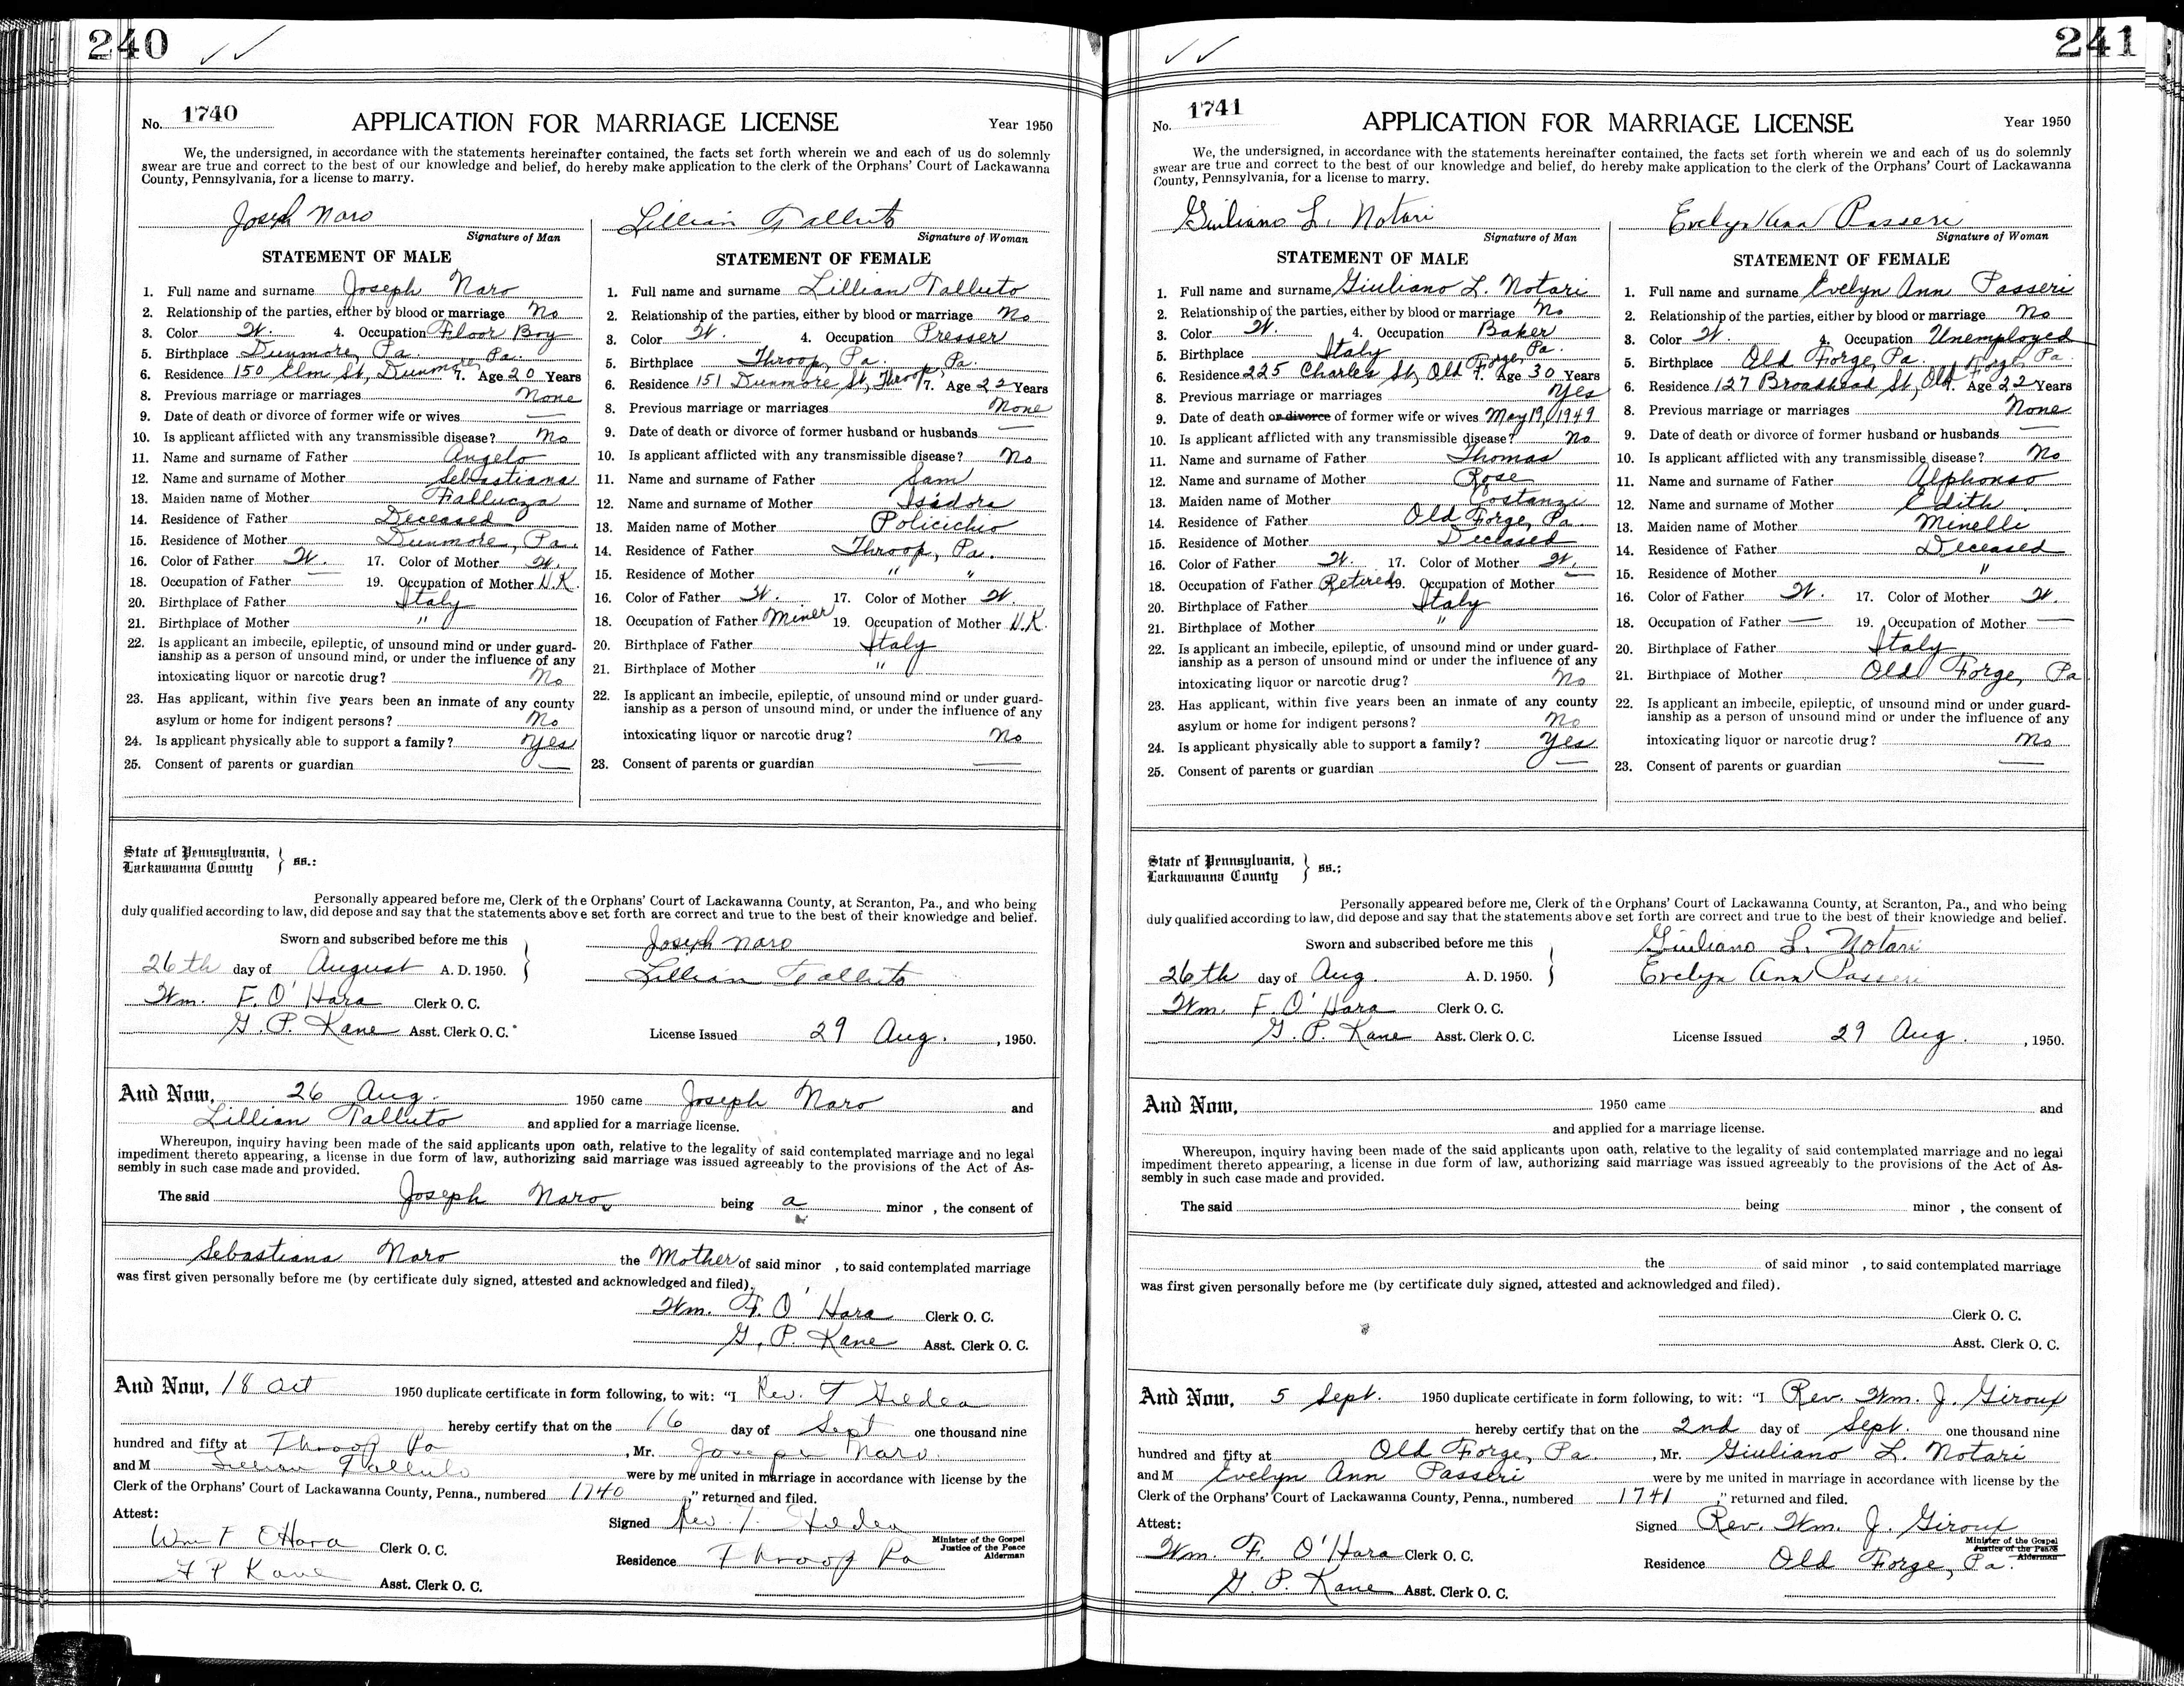 240
No. 1740 APPLICATION FOR MARRIAGE LICENSE Year 1950
We, the undersigned, in accordance with the statements hereinafter contained, the facts set forth wherein we and each of us do solemnly
swear are true and correct to the best of our knowledge and belief, do hereby make application to the clerk of the Orphans' Court of Lackawanna
County, Pennsylvania, for a license to marry.
Joseph Naro
Signature of Man
Lillian Talluto
Signature of Woman
STATEMENT OF MALE
1. Full name and surname Joseph Naro
2. Relationship of the parties, either by blood or marriage No
3. Color W. 4. Occupation Floor Boy
5. Birthplace Dunmore, Pa.
6. Residence 150 Elm St, Dunmore Pa. 7. Age 20 Years
8. Previous marriage or marriages None
9. Date of death or divorce of former wife or wives —
10. Is applicant afflicted with any transmissible disease? No
11. Name and surname of Father Angelo
12. Name and surname of Mother Sebastiana
13. Maiden name of Mother Fallucza
14. Residence of Father Deceased
15. Residence of Mother Dunmore, Pa.
16. Color of Father W. 17. Color of Mother W.
18. Occupation of Father — 19. Occupation of Mother H.K.
20. Birthplace of Father Italy
21. Birthplace of Mother "
22. Is applicant an imbecile, epileptic, of unsound mind or under guard-
ianship as a person of unsound mind, or under the influence of any
intoxicating liquor or narcotic drug? No
23. Has applicant, within five years been an inmate of any county
asylum or home for indigent persons? No
24. Is applicant physically able to support a family? Yes
25. Consent of parents or guardian —
STATEMENT OF FEMALE
1. Full name and surname Lillian Talluto
2. Relationship of the parties, either by blood or marriage No
3. Color W. 4. Occupation Presser
5. Birthplace Throop, Pa.
6. Residence 151 Dunmore St, Throop, Pa. 7. Age 22 Years
8. Previous marriage or marriages None
9. Date of death or divorce of former husband or husbands —
10. Is applicant afflicted with any transmissible disease? No
11. Name and surname of Father Sam
12. Name and surname of Mother Isadora
13. Maiden name of Mother Policichio
14. Residence of Father Throop, Pa.
15. Residence of Mother " "
16. Color of Father W. 17. Color of Mother W.
18. Occupation of Father Miner 19. Occupation of Mother H.K.
20. Birthplace of Father Italy
21. Birthplace of Mother "
22. Is applicant an imbecile, epileptic, of unsound mind or under guard-
ianship as a person of unsound mind, or under the influence of any
intoxicating liquor or narcotic drug? No
23. Consent of parents or guardian —
State of Pennsylvania,
Lackawanna County } ss.:
Personally appeared before me, Clerk of the Orphans' Court of Lackawanna County, at Scranton, Pa., and who being
duly qualified according to law, did depose and say that the statements above set forth are correct and true to the best of their knowledge and belief.
Sworn and subscribed before me this Joseph Naro
26th day of August A. D. 1950. Lillian Talluto
Wm. F. O'Hara Clerk O. C.
G. P. Kane Asst. Clerk O. C. License Issued 29 Aug. , 1950.
And Now, 26 Aug. 1950 came Joseph Naro and
Lillian Talluto and applied for a marriage license.
Whereupon, inquiry having been made of the said applicants upon oath, relative to the legality of said contemplated marriage and no legal
impediment thereto appearing, a license in due form of law, authorizing said marriage was issued agreeably to the provisions of the Act of As-
sembly in such case made and provided.
The said Joseph Naro being a minor , the consent of
Sebastiana Naro the Mother of said minor , to said contemplated marriage
was first given personally before me (by certificate duly signed, attested and acknowledged and filed).
Wm. F. O'Hara Clerk O. C.
G. P. Kane Asst. Clerk O. C.
And Now, 18 Oct 1950 duplicate certificate in form following, to wit: "I Rev. T Gildea
hereby certify that on the 16 day of Sept one thousand nine
hundred and fifty at Throop Pa , Mr. Joseph Naro
and M Lillian Talluto were by me united in marriage in accordance with license by the
Clerk of the Orphans' Court of Lackawanna County, Penna., numbered 1740 ," returned and filed.
Attest: Signed Rev. T. Gildea
Minister of the Gospel
Justice of the Peace
Alderman
Wm F O'Hara Clerk O. C. Residence Throop Pa
G P Kane Asst. Clerk O. C.
241
No. 1741 APPLICATION FOR MARRIAGE LICENSE Year 1950
We, the undersigned, in accordance with the statements hereinafter contained, the facts set forth wherein we and each of us do solemnly
swear are true and correct to the best of our knowledge and belief, do hereby make application to the clerk of the Orphans' Court of Lackawanna
County, Pennsylvania, for a license to marry.
Giuliano L. Notari
Signature of Man
Evelyn Ann Passeri
Signature of Woman
STATEMENT OF MALE
1. Full name and surname Giuliano L. Notari
2. Relationship of the parties, either by blood or marriage No
3. Color W. 4. Occupation Baker
5. Birthplace Italy
6. Residence 225 Charles St, Old Forge, Pa. 7. Age 30 Years
8. Previous marriage or marriages Yes
9. Date of death or divorce of former wife or wives May 19, 1949
10. Is applicant afflicted with any transmissible disease? No
11. Name and surname of Father Thomas
12. Name and surname of Mother Rose
13. Maiden name of Mother Costanzi
14. Residence of Father Old Forge, Pa
15. Residence of Mother Deceased
16. Color of Father W. 17. Color of Mother W.
18. Occupation of Father Retired 19. Occupation of Mother —
20. Birthplace of Father Italy
21. Birthplace of Mother "
22. Is applicant an imbecile, epileptic, of unsound mind or under guard-
ianship as a person of unsound mind or under the influence of any
intoxicating liquor or narcotic drug? No
23. Has applicant, within five years been an inmate of any county
asylum or home for indigent persons? No
24. Is applicant physically able to support a family? Yes
25. Consent of parents or guardian —
STATEMENT OF FEMALE
1. Full name and surname Evelyn Ann Passeri
2. Relationship of the parties, either by blood or marriage No
3. Color W. 4. Occupation Unemployed
5. Birthplace Old Forge, Pa.
6. Residence 127 Broadhead St, Old Forge, Pa. 7. Age 22 Years
8. Previous marriage or marriages None
9. Date of death or divorce of former husband or husbands —
10. Is applicant afflicted with any transmissible disease? No
11. Name and surname of Father Alphonso
12. Name and surname of Mother Edith
13. Maiden name of Mother Minelli
14. Residence of Father Deceased
15. Residence of Mother "
16. Color of Father W. 17. Color of Mother W.
18. Occupation of Father — 19. Occupation of Mother —
20. Birthplace of Father Italy
21. Birthplace of Mother Old Forge, Pa
22. Is applicant an imbecile, epileptic, of unsound mind or under guard-
ianship as a person of unsound mind or under the influence of any
intoxicating liquor or narcotic drug? No
23. Consent of parents or guardian —
State of Pennsylvania,
Lackawanna County } ss.:
Personally appeared before me, Clerk of the Orphans' Court of Lackawanna County, at Scranton, Pa., and who being
duly qualified according to law, did depose and say that the statements above set forth are correct and true to the best of their knowledge and belief.
Sworn and subscribed before me this Giuliano L. Notari
26th day of Aug. A. D. 1950. Evelyn Ann Passeri
Wm. F. O'Hara Clerk O. C.
G. P. Kane Asst. Clerk O. C. License Issued 29 Aug. , 1950.
And Now, 1950 came and
and applied for a marriage license.
Whereupon, inquiry having been made of the said applicants upon oath, relative to the legality of said contemplated marriage and no legal
impediment thereto appearing, a license in due form of law, authorizing said marriage was issued agreeably to the provisions of the Act of As-
sembly in such case made and provided.
The said being minor , the consent of
the of said minor , to said contemplated marriage
was first given personally before me (by certificate duly signed, attested and acknowledged and filed).
Clerk O. C.
Asst. Clerk O. C.
And Now, 5 Sept. 1950 duplicate certificate in form following, to wit: "I Rev. Wm. J. Giroux
hereby certify that on the 2nd day of Sept. one thousand nine
hundred and fifty at Old Forge, Pa. , Mr. Giuliano L. Notari
and M Evelyn Ann Passeri were by me united in marriage in accordance with license by the
Clerk of the Orphans' Court of Lackawanna County, Penna., numbered 1741 ," returned and filed.
Attest: Signed Rev. Wm. J. Giroux
Minister of the Gospel
Justice of the Peace
Alderman
Wm. F. O'Hara Clerk O. C. Residence Old Forge, Pa.
G. P. Kane Asst. Clerk O. C.